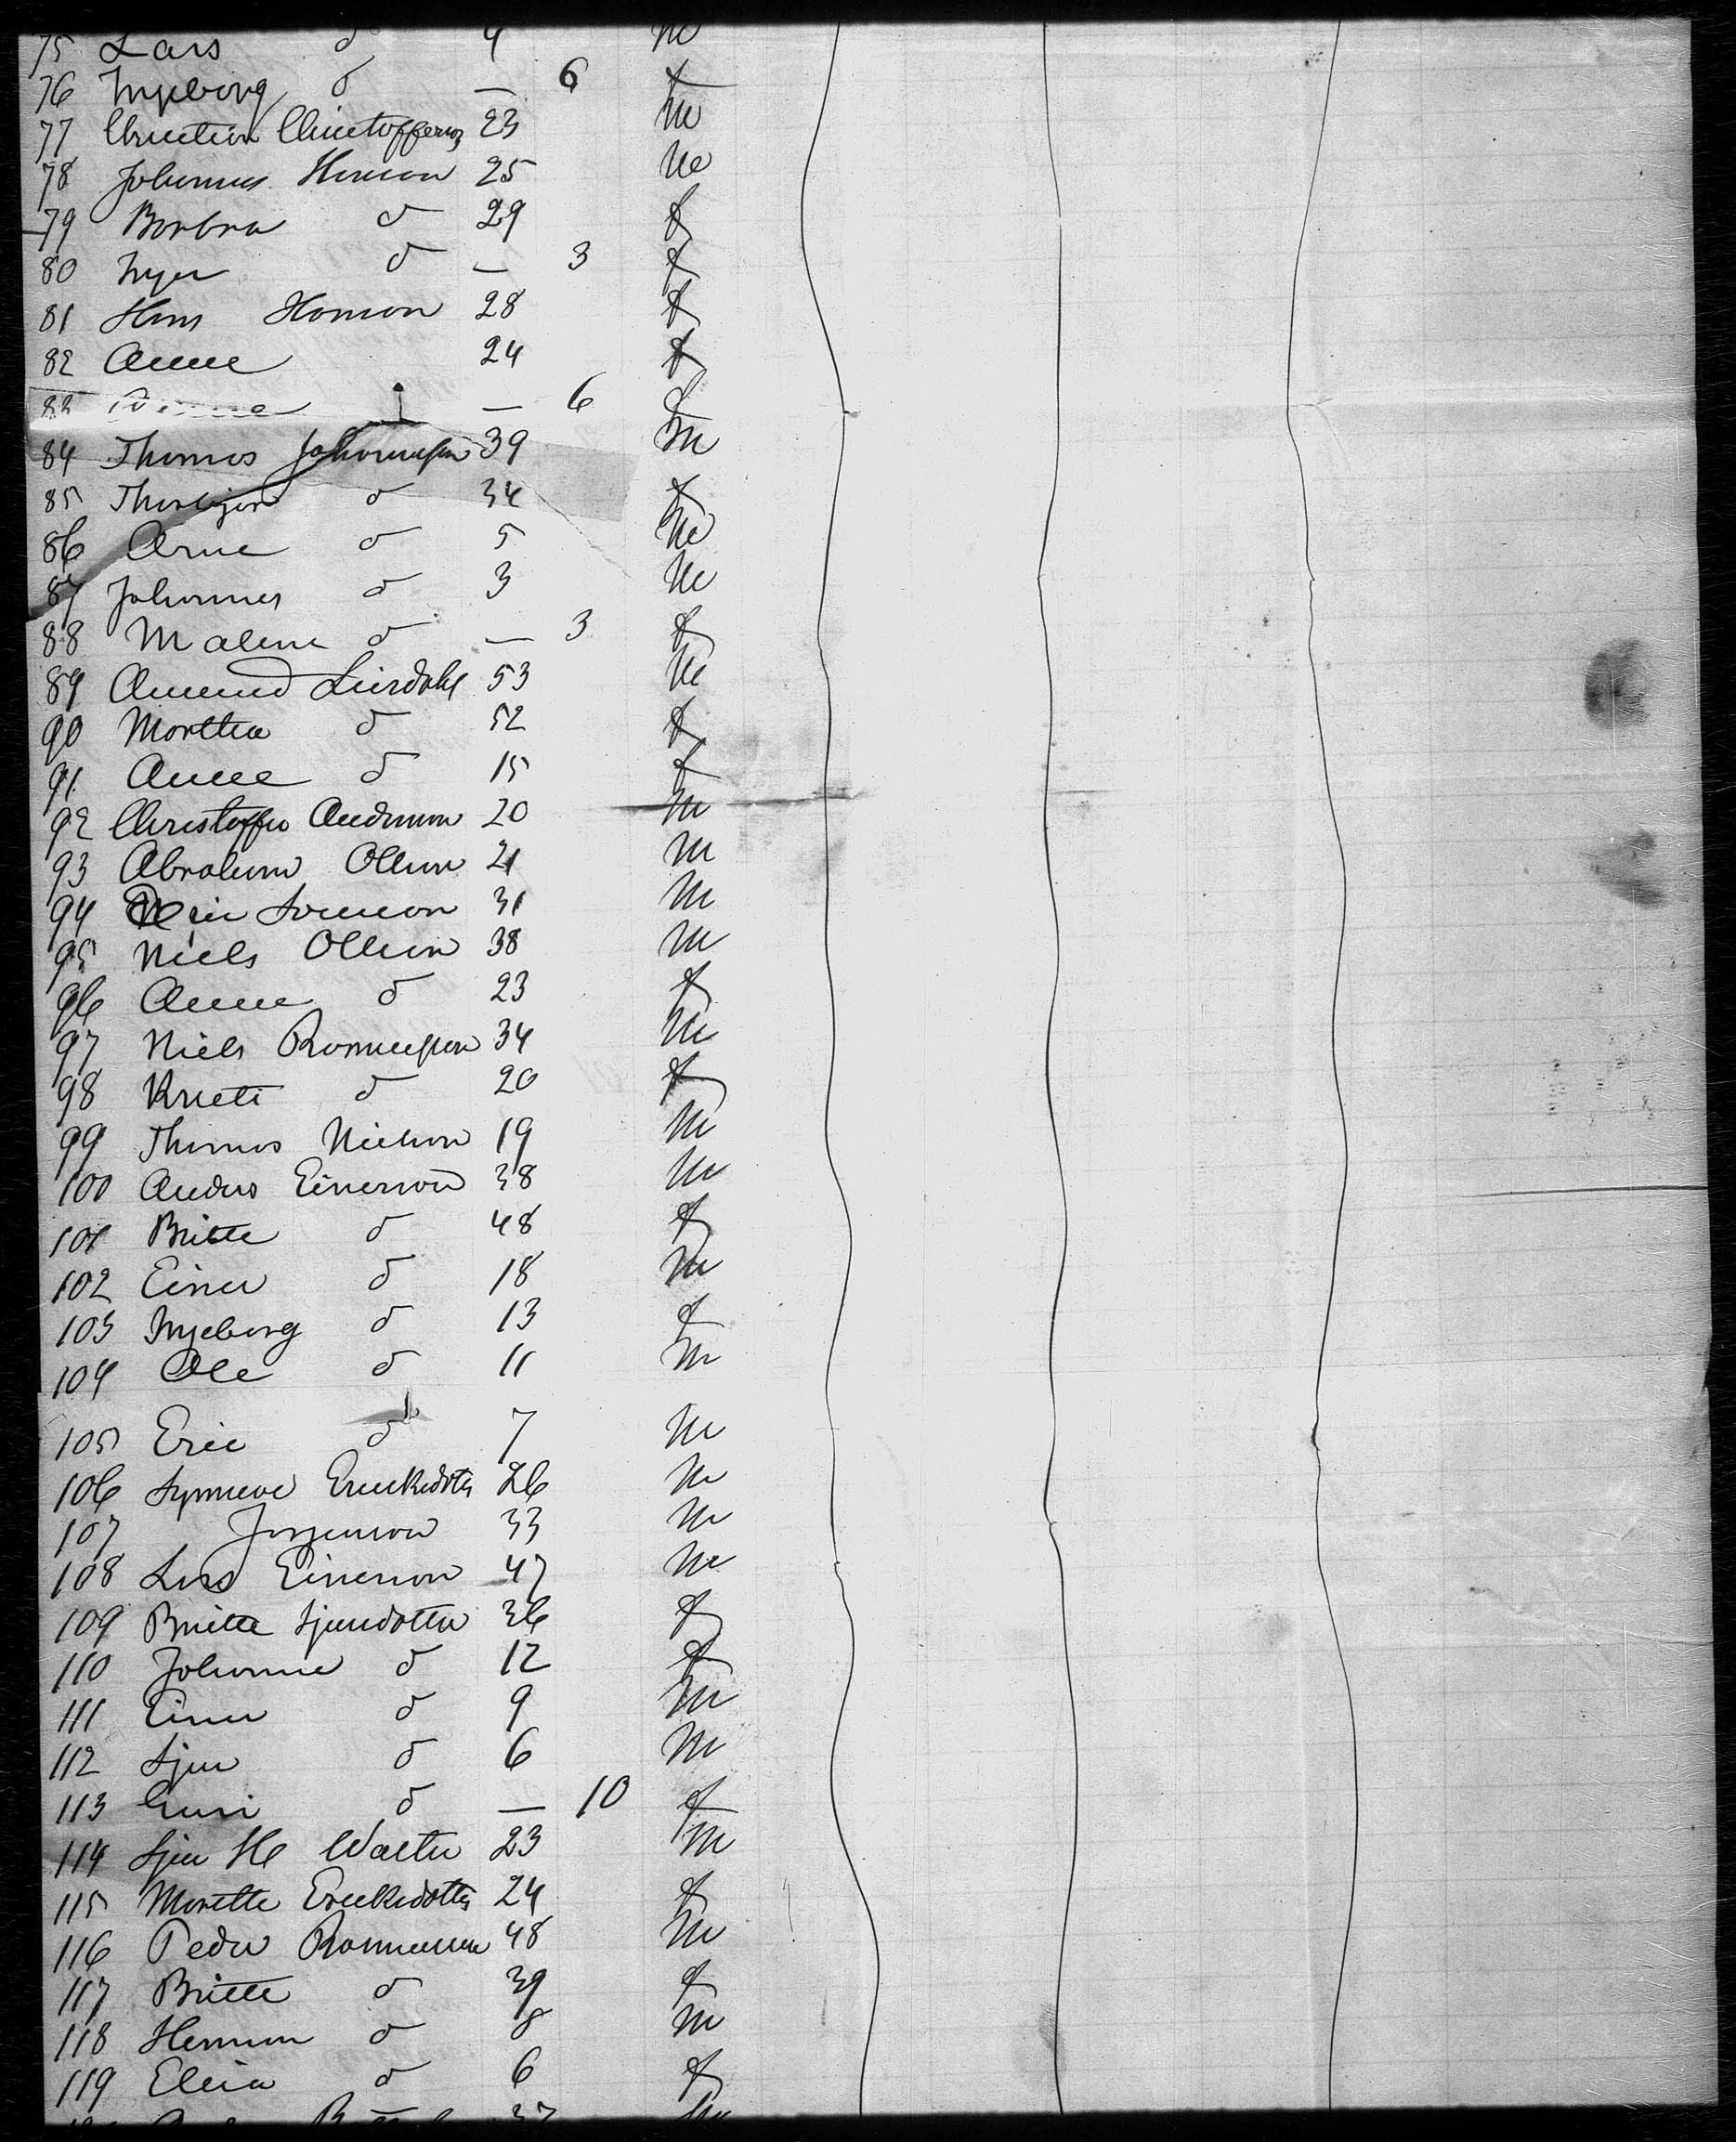 75 Lars d 4 m
76 Ingeborg d — 6 f
77 Christian Christofferson 23 m
78 Johannes Hanson 25 m
79 Barbra d 29 f
80 Inger d — 3 f
81 Hans Hanson 28 f
82 Anne 24 f
83 — 6 f
84 Thomas Johannesen 39 m
85 Thorbjor d 34 f
86 Arne d 5 m
87 Johannes d 3 m
88 Malene d — 3 f
89 Amund Lirdahl 53 m
90 Martha d 52 f
91 Anne d 15 f
92 Christoffer Anderson 20 m
93 Abraham Olleson 21 m
94 31 m
95 Niels Olleson 38 m
96 Anne d 23 f
97 Niels Rasmussen 34 m
98 Kristi d 20 f
99 Thomas Nielson 19 m
100 Anders Einerson 38 m
101 Britte d 48 f
102 Einer d 18 m
103 Ingeborg d 13 f
104 Ole d 11 m
105 Eric d 7 m
106 Synneve Ericksdotter 26 m
107 Jorgenson 33 m
108 Lars Einerson 47 m
109 Britte Sjursdotter 36 f
110 Johanne d 12 f
111 Einer d 9 m
112 Sjur d 6 m
113 Guri d — 10 f
114 Sjur H Walter 23 m
115 Marette Ericksdotter 24 f
116 Peder Rasmussen 48 m
117 Britte d 39 f
118 Herman d 8 m
119 d 6 f
37 m